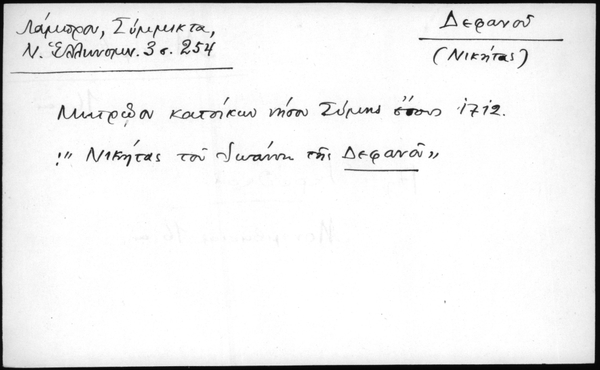 Λάμπρου, Σύμμικτα,
Ν. Ἑλληνομν. 3 σ. 254
Δεφανοῦ
(Νικήτας)
Μητρῶον κατοίκων νήσου Σύμης ἔτους 1712.
:" Νικήτας τοῦ Ἰωάννη τῆς Δεφανοῦ"